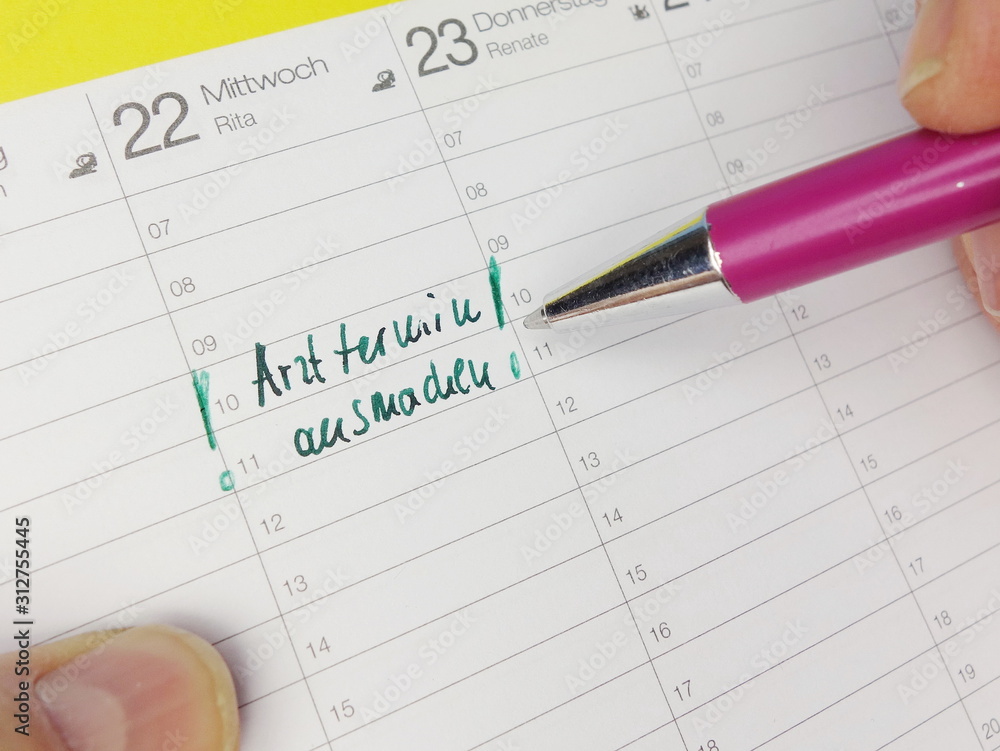 22 Mittwoch
Rita
07
08
09
10 Arzttermin
11 ausmachen
12
13
14
15
23 Donnerstag
Renate
07
08
09
10
11
12
13
14
15
16
17
18
07
08
09
12
13
14
15
16
17
18
19
20
Adobe Stock | #312755445